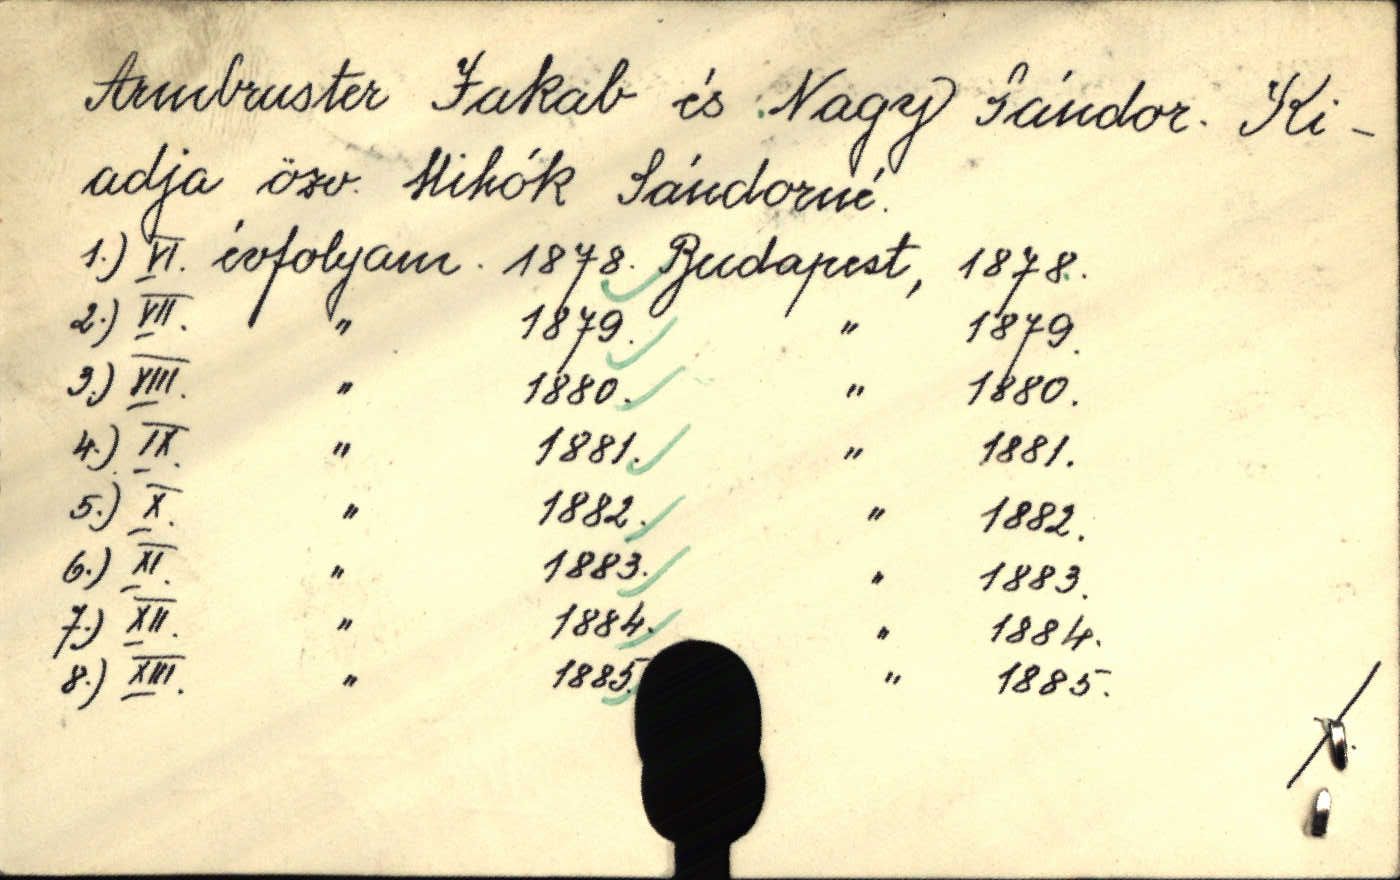 Armbruster Jakab és Nagy Sándor. Ki-
adja özv. Mihók Sándorné.
1.) VI. évfolyam. 1878. Budapest, 1878.
2.) VII. " 1879. " 1879.
3.) VIII. " 1880. " 1880.
4.) IX. " 1881. " 1881.
5.) X. " 1882. " 1882.
6.) XI. " 1883. " 1883.
7.) XII. " 1884. " 1884.
8.) XIII. " 1885. " 1885.